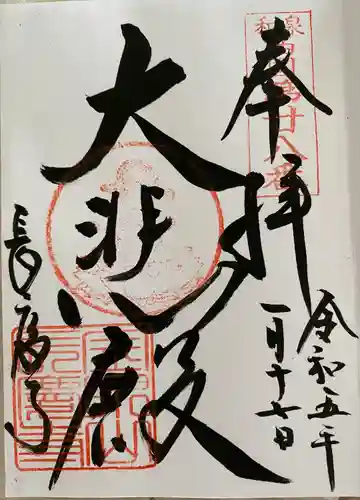 奉拝
和泉
西国第廿八番
令和五年
一月十七日
大悲殿
長慶寺